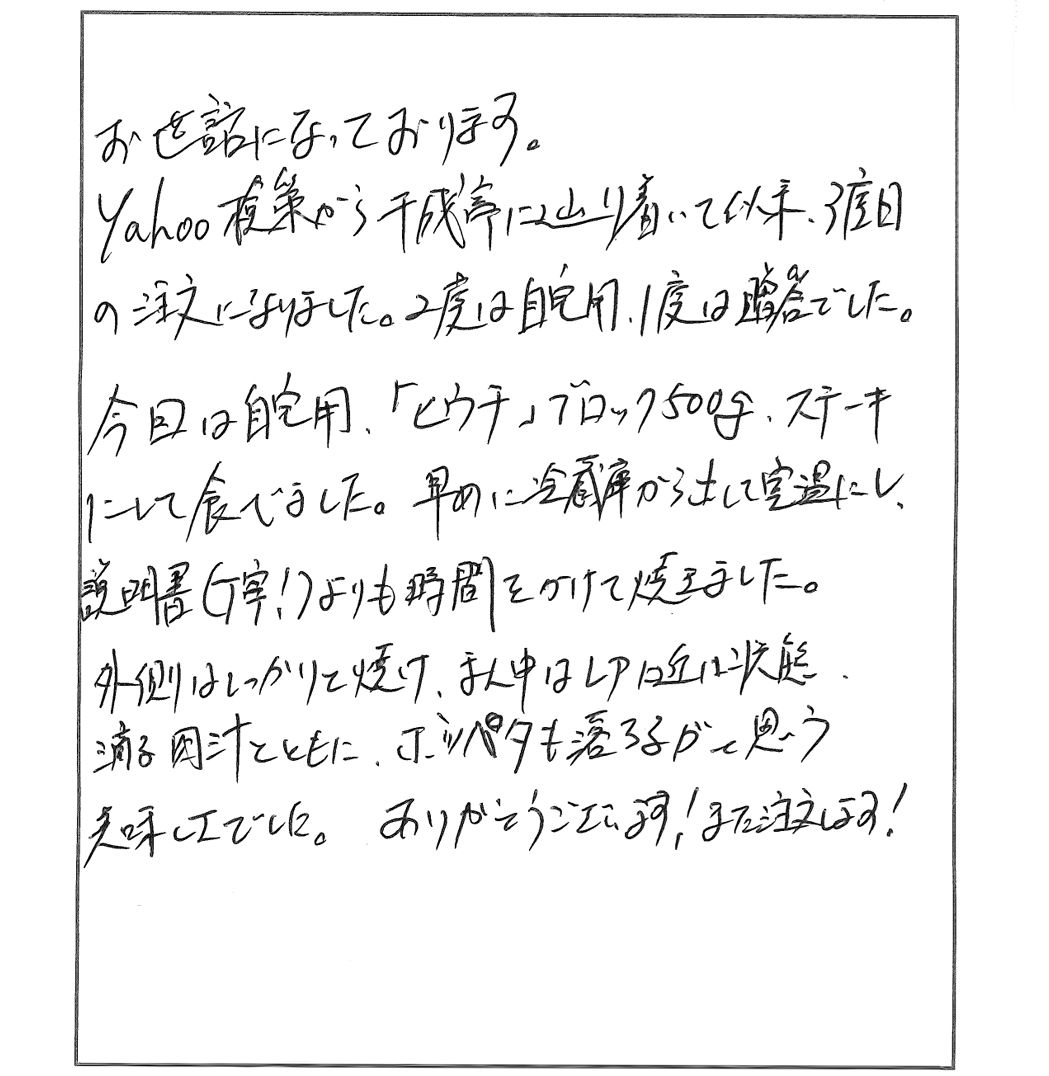 お世話になっております。
Yahoo検策から千成亭に辿り着いて以来、3度目
の注文になりました。2度は自宅用、1度は贈答でした。
今日は自宅用、「ヒウチ」ブロック500g、ステーキ
にして食べました。早めに冷蔵庫から出して室温にし、
説明書(丁寧!)よりも時間をかけて焼きました。
外側はしっかりと焼け、まん中はレアに近い状態、
滴る肉汁とともに、ホッペタも落ちるかと思う
美味しさでした。 ありがとうございます!また注文します!